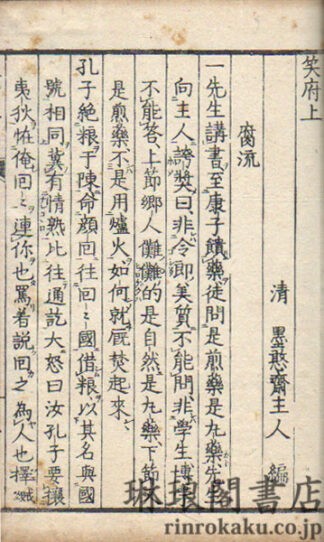 笑府上
清 墨憨齋主人 編
腐流
一先生講書至康子饋藥徒問是煎藥是丸藥先生
向主人誇奨曰非令郎美質不能問非學生博
不能答上節鄉人儺儺的是自然是丸藥下節
是煎藥不是用爐火如何就廐焚起來
孔子絶粮于陳命顏回往回々國借粮以其名與國
號相同冀有情熟比往通訖大怒曰汝孔子要攘
夷狄怪俺回々連你也罵着説回之為人也擇
琳琅閣書店
rinrokaku.co.jp